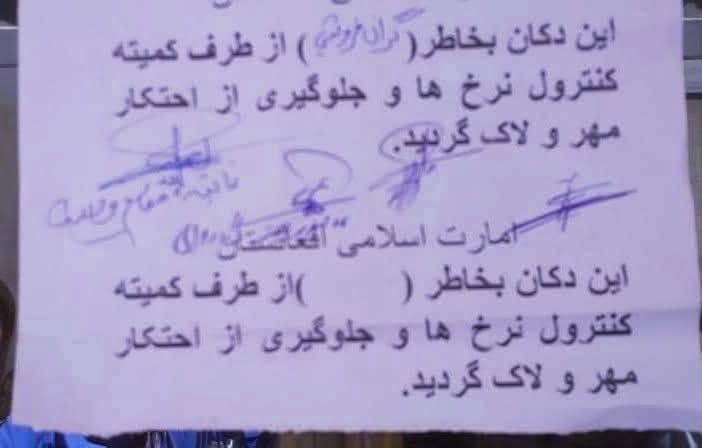 این دکان بخاطر (گران فروشی) از طرف کمیته
کنترول نرخ ها و جلوگیری از احتکار
مهر و لاک گردید.
امارت اسلامی افغانستان
این دکان بخاطر (          ) از طرف کمیته
کنترول نرخ ها و جلوگیری از احتکار
مهر و لاک گردید.